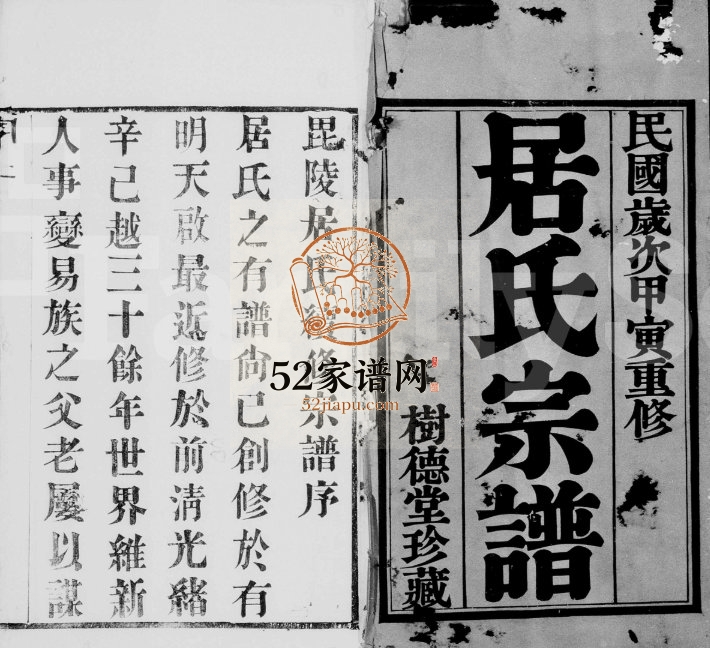 民國歲次甲寅重修
居氏宗譜
樹德堂珍藏
毘陵居氏 宗譜序
居氏之有譜尙已創修於有
明天啟最近修於前淸光緖
辛已越三十餘年世界維新
人事變易族之父老屢以謀
52家谱网
52jiapu.com